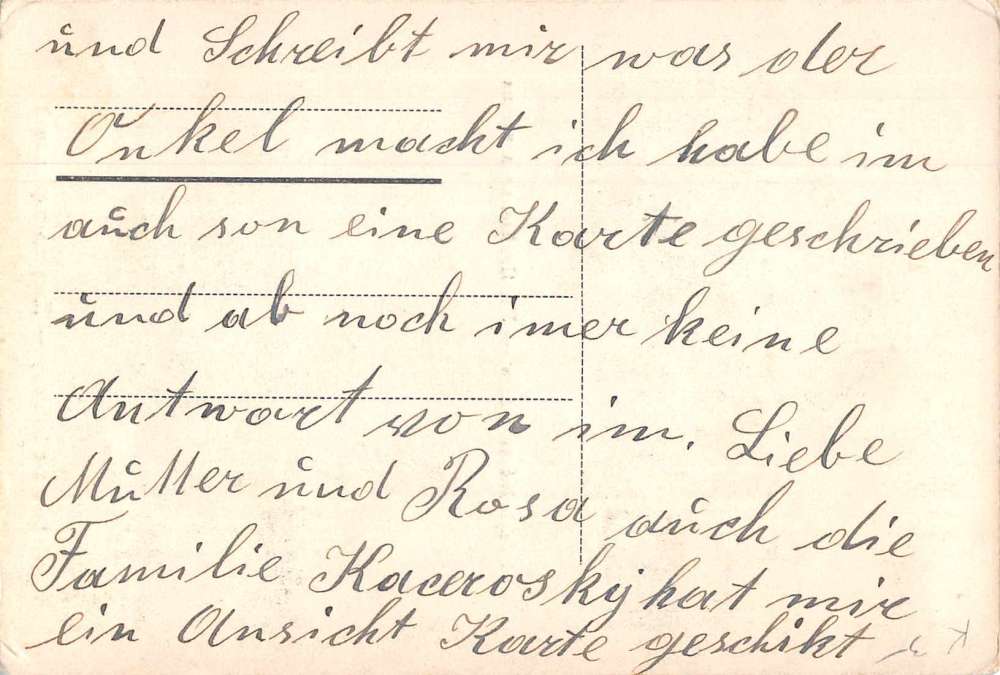 und Schreibt mir was der
Onkel macht ich habe im
auch son eine Karte geschrieben
und ab noch imer keine
Antwort von im. Liebe
Mutter und Rosa auch die
Familie Kacerosky hat mir
ein Ansicht Karte geschikt